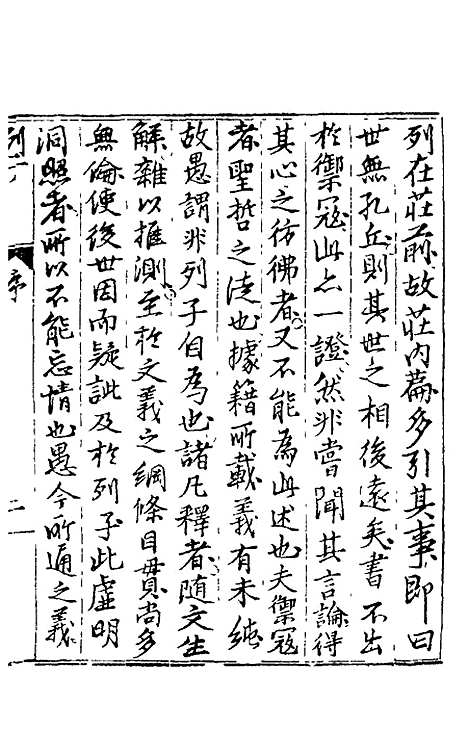 列在莊前故莊内篇多引其事即曰
世無孔丘則其世之相後遠矣書不出
於禦寇此亦一證然非嘗聞其言論得
其心之彷彿者又不能為此述也夫禦寇
者聖哲之徒也據籍所載義有未純
故愚謂非列子自為也諸凡釋者随文生
解雜以推測至於文義之綱條目貫尚多
無倫使後世因而疑訿及於列子此虛明
洞照者所以不能忘情也愚今所通之義
列子 序 二